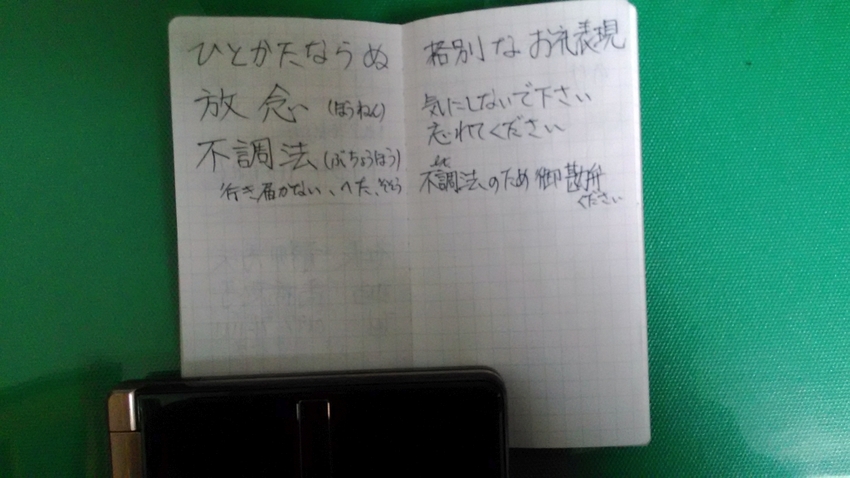 ひとかたならぬ
格別なお礼表現
放念(ほうねん)
気にしないで下さい
忘れてください
不調法(ぶちょうほう)
行き届かない、へた、そそう
不調法のため御勘弁
ください